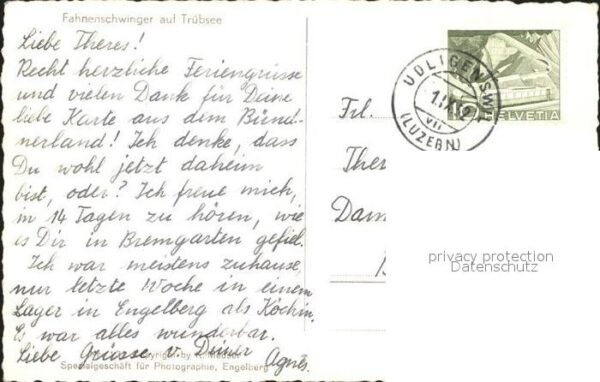 Fahnenschwinger auf Trübsee
Liebe Theres!
Recht herzliche Feriengrüsse
und vielen Dank für Deine
liebe Karte aus dem Bünd-
nerland! Ich denke, dass
Du wohl jetzt daheim
bist, oder? Ich freue mich,
in 14 Tagen zu hören, wie
es Dir in Bremgarten gefiel.
Ich war meistens zuhause,
nur letzte Woche in einem
Lager in Engelberg als Köchin.
Es war alles wunderbar.
Liebe Grüsse v. Deiner Agnes.
Copyright by
Spezialgeschäft für Photographie, Engelberg
UDLIGENSWIL
(LUZERN)
HELVETIA
Frl.
Ther
Dam
privacy protection
Datenschutz